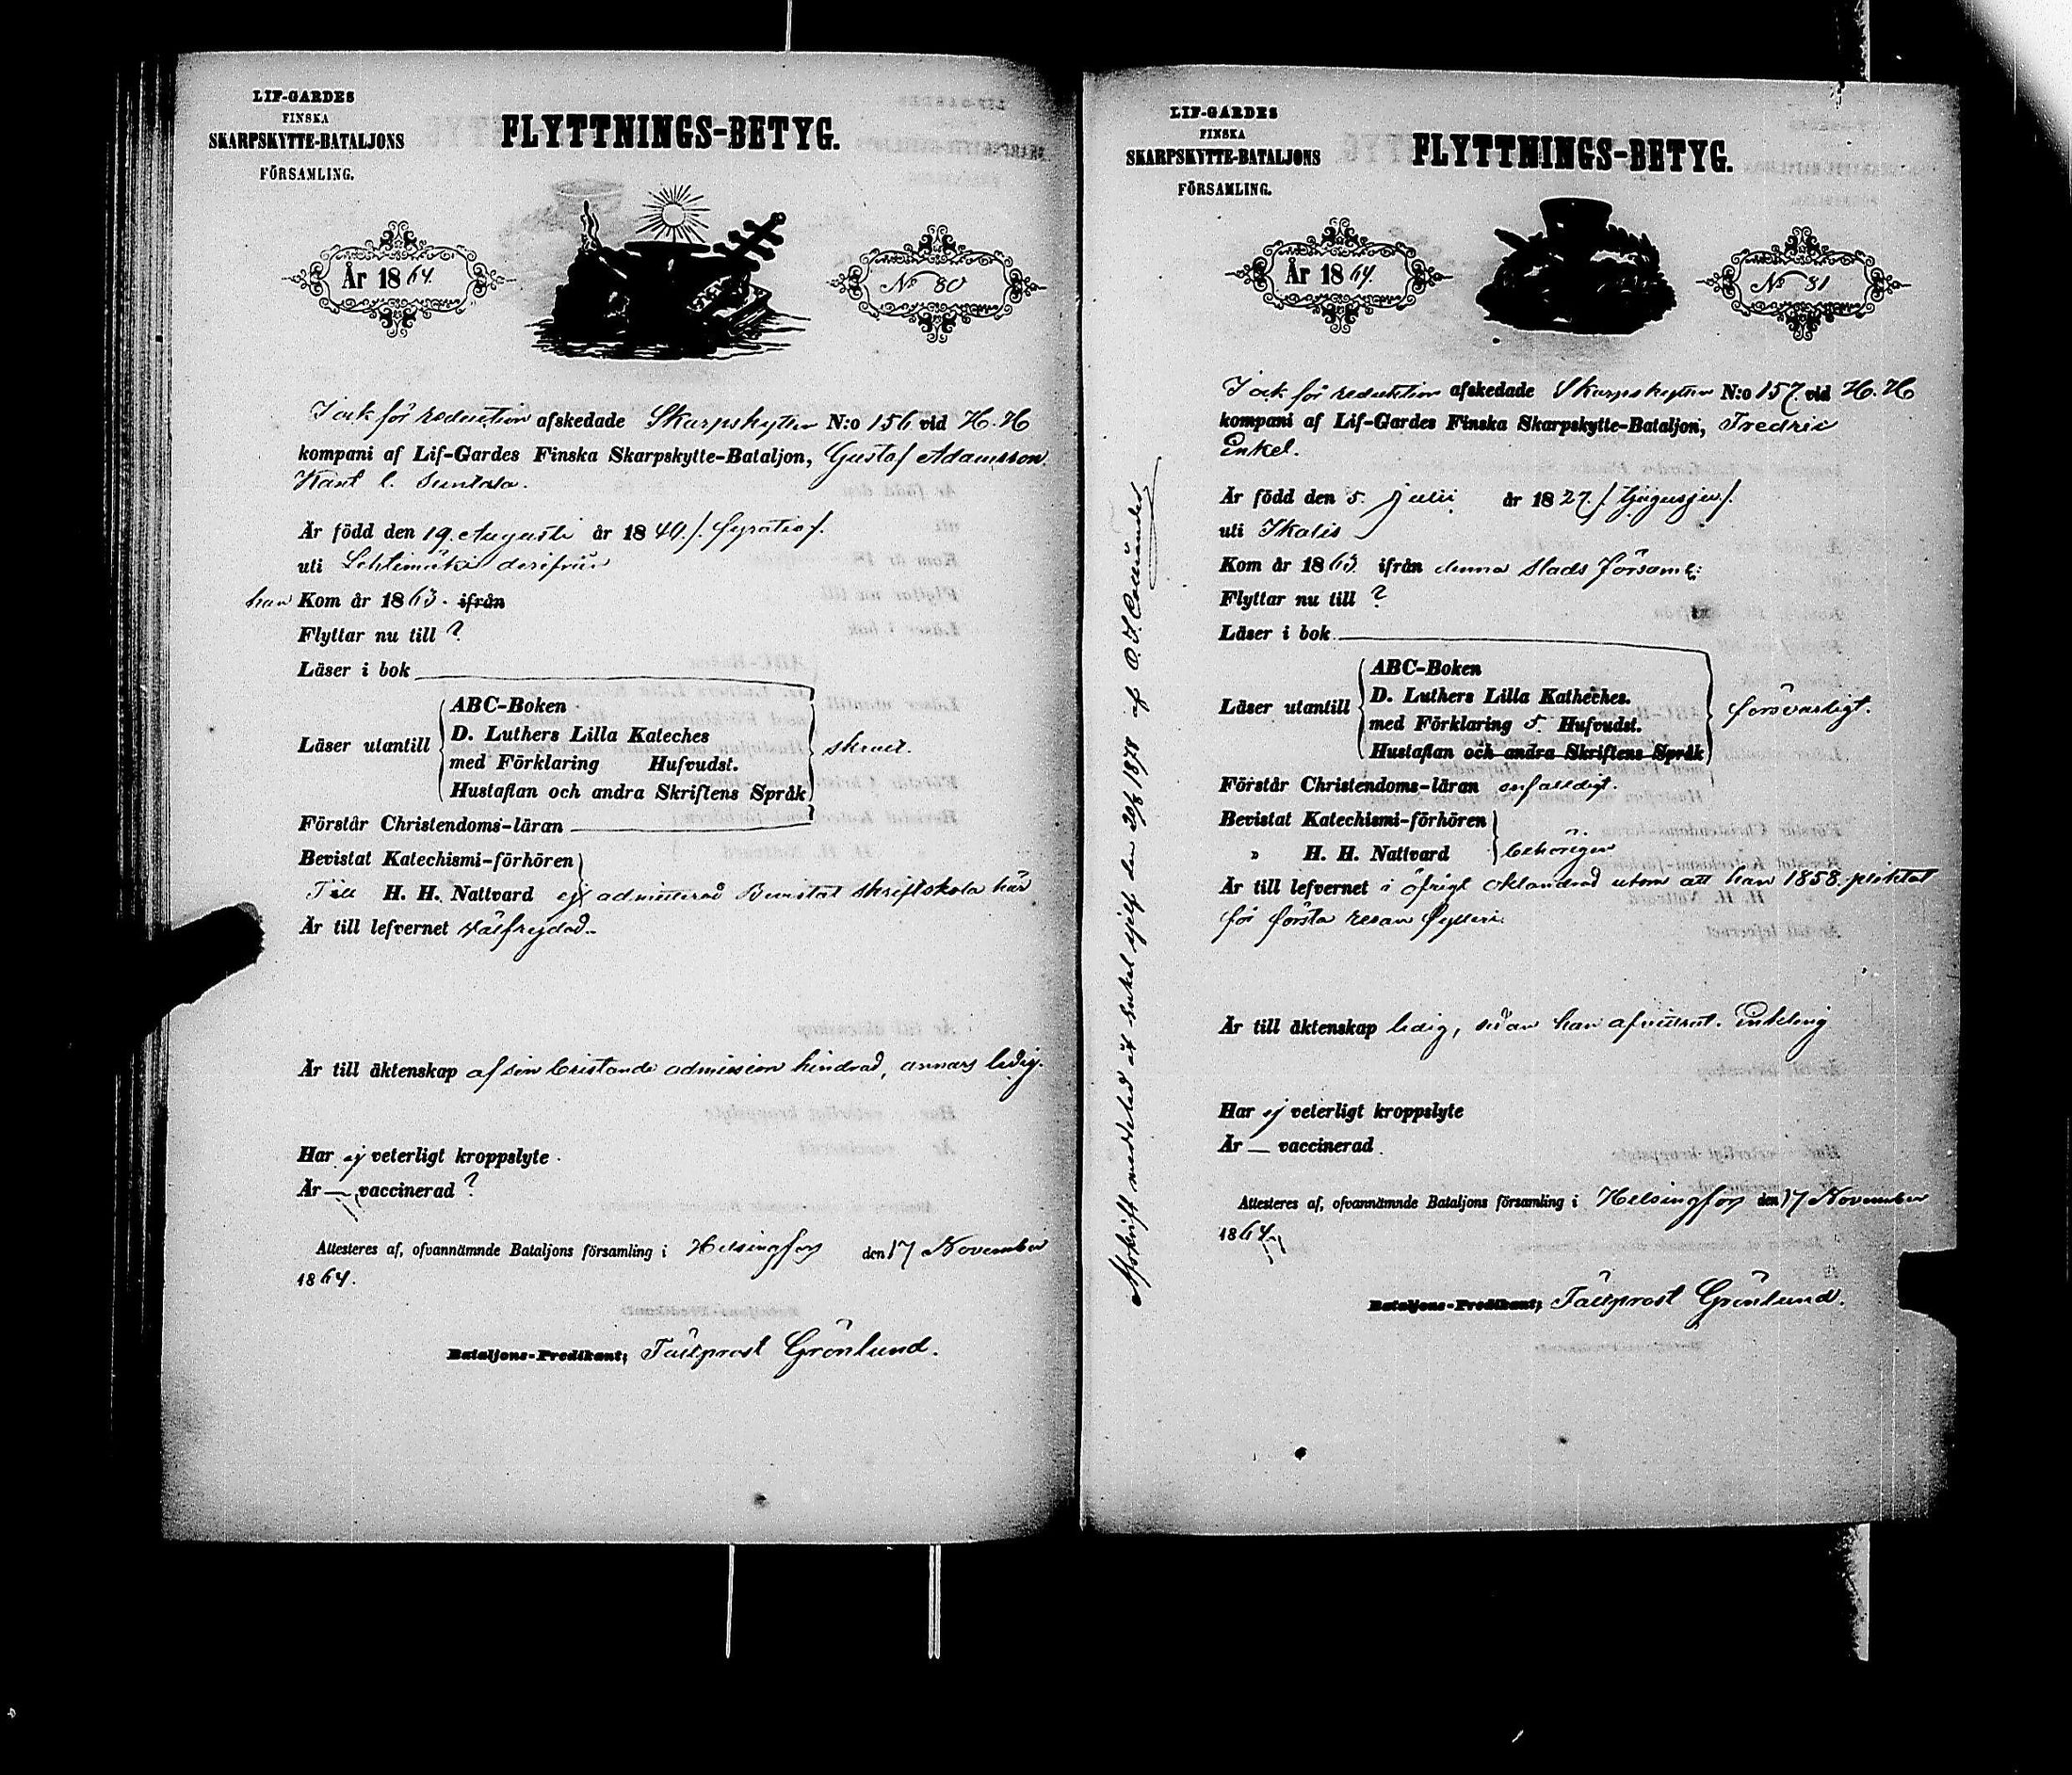 LIF-GARDES
FINSKA
SKARPSKYTTE-BATALJONS
FÖRSAMLING.
FLYTTNINGS-BETYG.
År 1864.
No 80
för reduction afskedade Skarpskytten N:o 156 vid H. H
kompani af Lif-Gardes Finska Skarpskytte-Bataljon, Gustaf Adamsson
Är född den 19. Augusti år 1840./. fyratio/.
uti Lehtimäki derifrån
han Kom år 1863. ifrån
Flyttar nu till ?
Läser i bok
Läser utantill
ABC-Boken
D. Luthers Lilla Kateches
med Förklaring Hufvudst.
Hustaflan och andra Skriftens Språk
skrael.
Förstår Christendoms-läran
Bevistat Katechismi-förhören
Till H. H. Nattvard ej admitterad Bevistat skriftskola här
Är till lefvernet välfrejdad.
Är till äktenskap af sin bristande admission hindrad, annars ledig.
Har ej veterligt kroppslyte.
Är — vaccinerad ?
Attesteres af, ofvannämnde Bataljons församling i Helsingfors den 17 November
1864.
Bataljons-Predikant; Fältprost Grönlund.
LIF-GARDES
FINSKA
SKARPSKYTTE-BATALJONS
FÖRSAMLING.
FLYTTNINGS-BETYG.
År 1864.
No 81
för reduktion afskedade Skarpskytten N:o 157. vid H. H
kompani af Lif-Gardes Finska Skarpskytte-Bataljon, Fredric
Enkel.
Är född den 5. Julii år 1827. /. tjugusju/.
uti Ikalis
Kom år 1863. ifrån denna stads Församl:
Flyttar nu till ?
Läser i bok
Läser utantill
ABC-Boken
D. Luthers Lilla Katheches.
med Förklaring 5. Hufvudst.
Hustaflan och andra Skriftens Språk
försvarligt.
Förstår Christendoms-läran enfaldigt.
Bevistat Katechismi-förhören
» H. H. Nattvard
behörigen
Är till lefvernet i öfrigt oklandrad utom att han 1858. pliktat
för första resan fylleri.
Är till äktenskap ledig, sedan han afvittrat. Enkling
Har ej veterligt kroppslyte
Är — vaccinerad.
Attesteres af, ofvannämnde Bataljons församling i Helsingfors den 17 November
1864.
Bataljons-Predikant; Fältprost Grönlund.
Afskrift meddelad åt Enkel sjelf den 1878 af